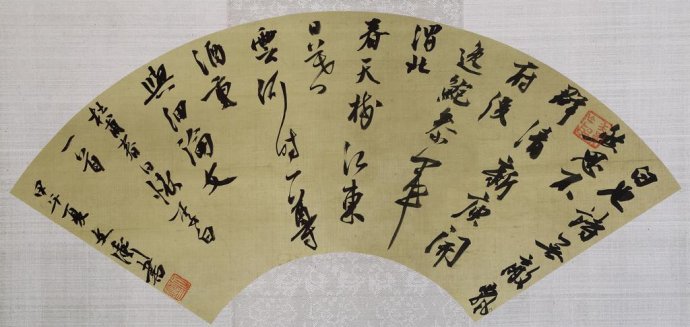 白也詩無敵飄
然思不
群清新庾開
府俊
逸鮑參軍
渭北
春天樹江東
日暮
雲何時一尊
酒重
與細論文
杜甫春日憶李白
一首
甲午夏
書